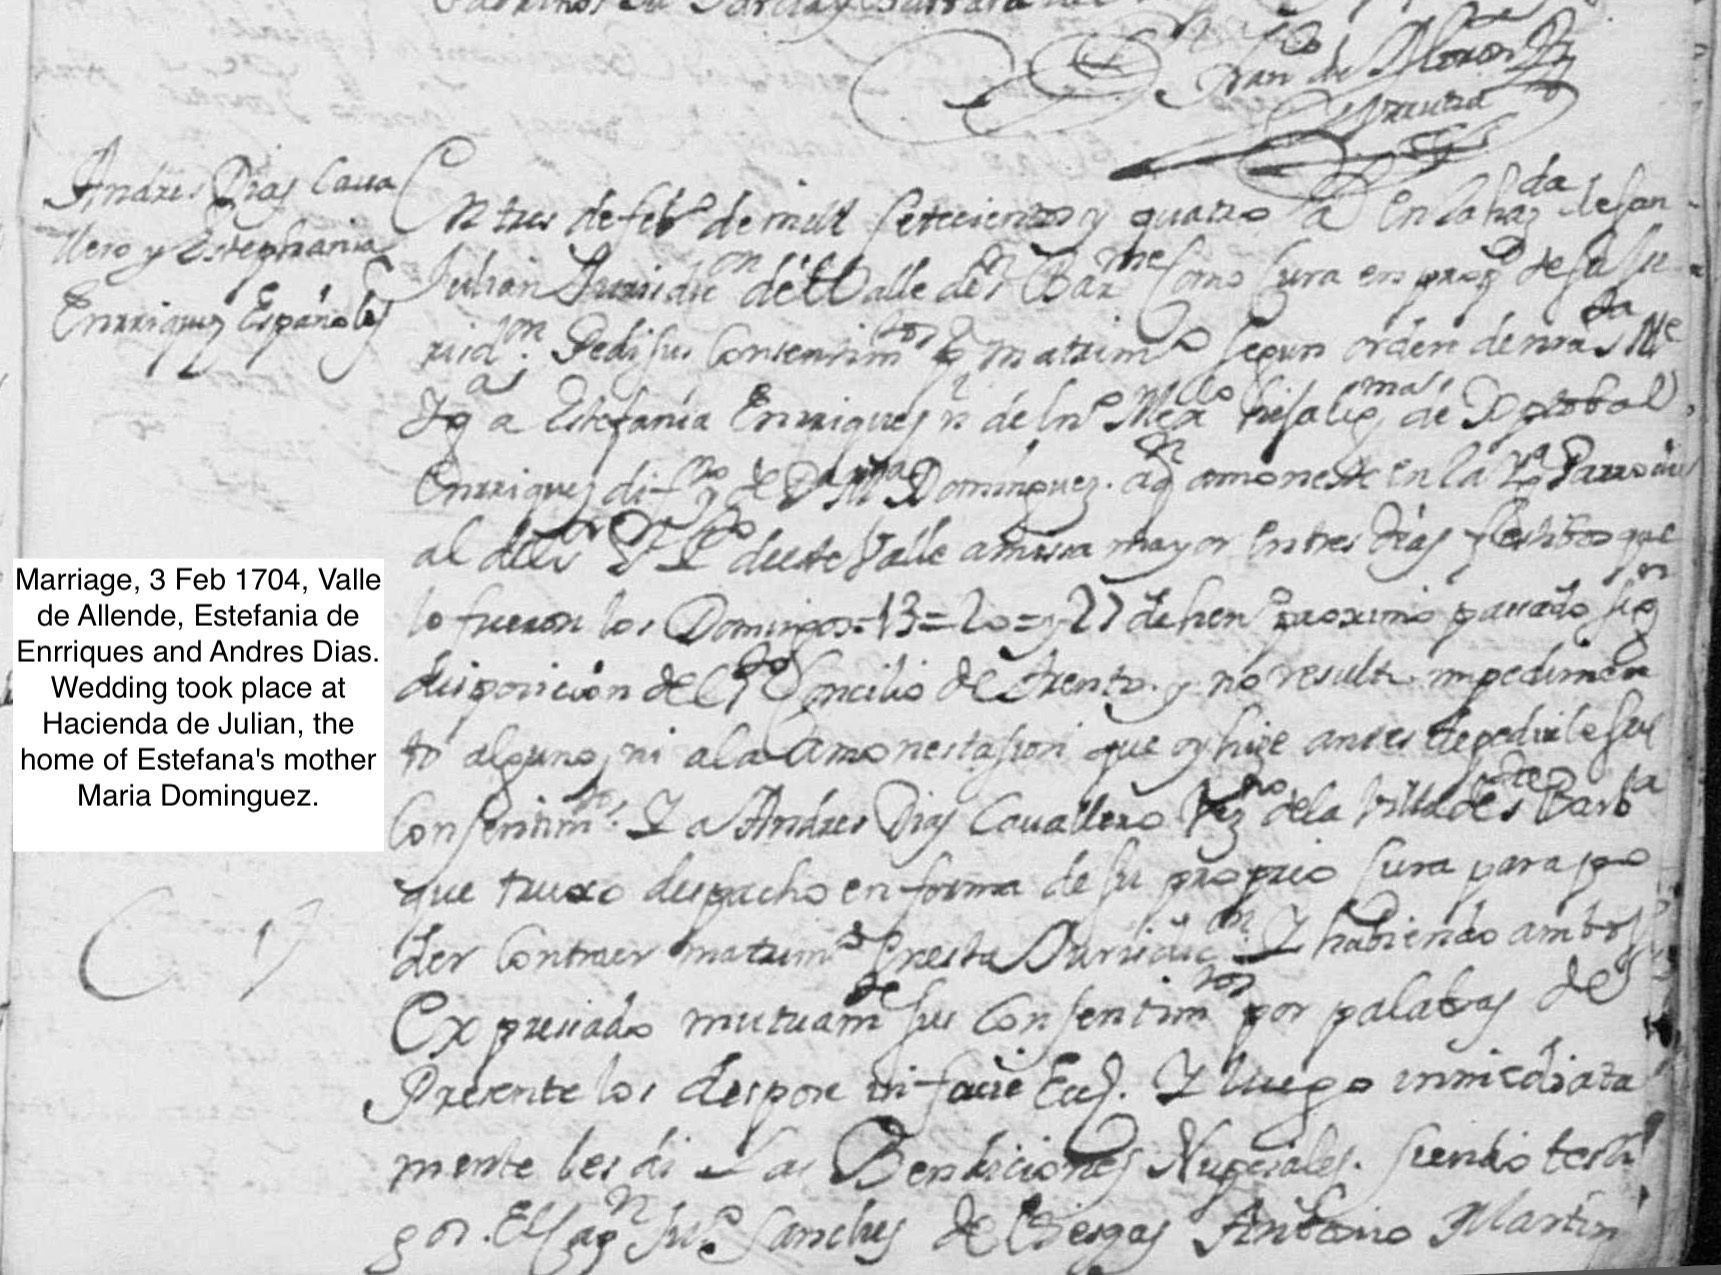 Juan de
Urrutia
Andres Dias Caua
llero y Estephania
Enrriquez Españoles
En tres de febº de mill setecientos y quatro a en la hazda de san
Julian Jurisdicon del Valle de sn Barme Como Cura en de su Ju
risdon. Pedi sus Consentimtos Matrimº segun orden de nra sta Me
Yga a Estefania Enrriques de hija de
Enrriquez difto y de Da Ma Dominguez. amonesté en la Parroqui
al de este Valle a missa mayor en tres dias festibos que
lo fueron los Domingos=13=20=y 27 de henº proximo passado
disposicion del Sto Concilio de Trento. y no resultó impedimen
to alguno, ni a la amonestasion que oy hize antes de pedirle sus
Consentimtos. Y a Andres Dias Cauallero Vezno de la Villa de Sta Barba
que truxo despacho en forma de su proprio Cura para po
der Contraer matrimº en esta Jurisdicon. Y habiendo ambos
Expressado mutuamte sus Consentimtos por palabras de
Presente los despose in facie Eccl. Y luego inmediata
mente les di Las Bendiciones Nupciales. siendo testi
gos. El Capn Juº Sanches de Antonio Martin
Marriage, 3 Feb 1704, Valle
de Allende, Estefania de
Enrriques and Andres Dias.
Wedding took place at
Hacienda de Julian, the
home of Estefana's mother
Maria Dominguez.